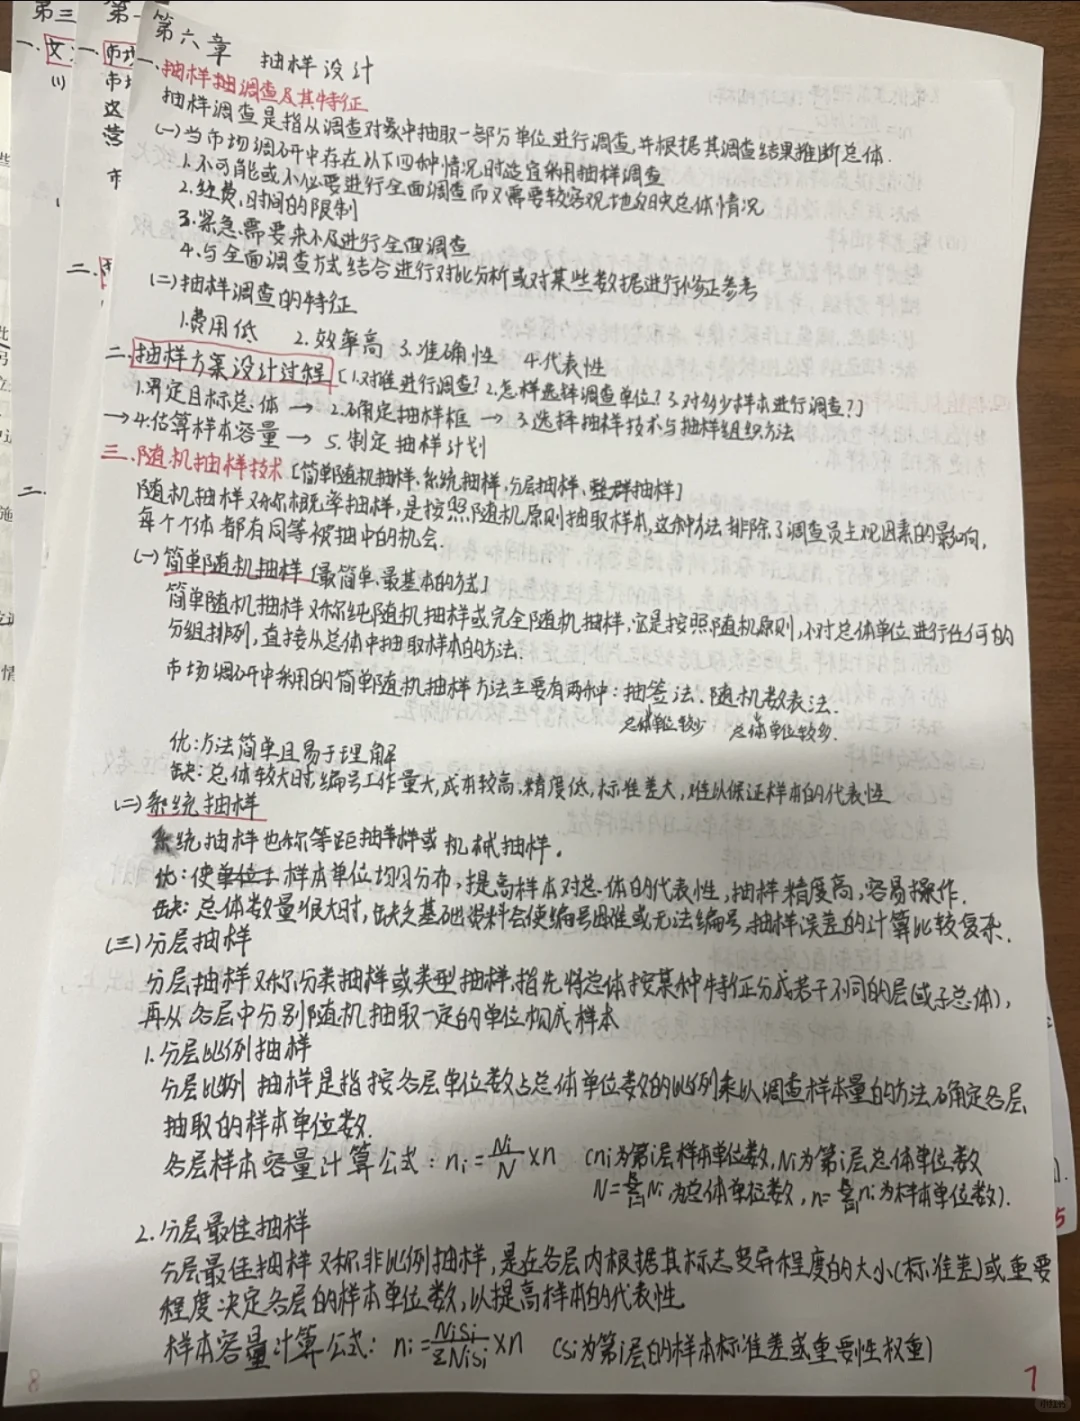 第三
第一
一.
一.
市
(1)
市
这
营
市
二.
二.
第六章 抽样设计
一.抽样抽调查及其特征
抽样调查是指从调查对象中抽取一部分单位进行调查,并根据其调查结果推断总体.
(一)当市场调研中存在以下四种情况时适宜采用抽样调查
1.不可能或不必要进行全面调查而又需要较客观地反映总体情况
2.经费,时间的限制
3.紧急需要来不及进行全面调查
4.与全面调查方式结合进行对比分析或对某些数据进行修正参考
(二)抽样调查的特征
1.费用低 2.效率高 3.准确性 4.代表性
二.抽样方案设计过程[1.对谁进行调查?2.怎样选择调查单位?3.对多少样本进行调查?]
1.界定目标总体→2.确定抽样框→3.选择抽样技术与抽样组织方法
→4.估算样本容量→5.制定抽样计划
三.随机抽样技术[简单随机抽样、系统抽样,分层抽样、整群抽样]
随机抽样又称概率抽样,是按照随机原则抽取样本,这种方法排除了调查员主观因素的影响,
每个个体都有同等被抽中的机会.
(一)简单随机抽样[最简单、最基本的方式]
简单随机抽样又称纯随机抽样或完全随机抽样,它是按照随机原则,不对总体单位进行任何的
分组排列,直接从总体中抽取样本的方法.
市场调研中采用的简单随机抽样方法主要有两种:抽签法.随机数表法.
总体单位较少 总体单位较多.
优:方法简单且易于理解
缺:总体较大时,编号工作量大,成本较高,精度低,标准差大,难以保证样本的代表性
(二)系统抽样
系统抽样也称等距抽样或机械抽样.
优:使单位于样本单位均匀分布,提高样本对总体的代表性,抽样精度高,容易操作.
缺:总体数量很大时,缺乏基础资料会使编号困难或无法编号,抽样误差的计算比较复杂.
(三)分层抽样
分层抽样又称分类抽样或类型抽样,指先将总体按某种特征分成若干不同的层(或子总体),
再从各层中分别随机抽取一定的单位构成样本
1.分层比例抽样
分层比例抽样是指按各层单位数占总体单位数的比例乘以调查样本量的方法确定各层
抽取的样本单位数.
各层样本容量计算公式:ni=Ni/N×n (ni为第i层样本单位数,Ni为第i层总体单位数
N=ΣNi为总体单位数,n=Σni为样本单位数).
2.分层最佳抽样
分层最佳抽样又称非比例抽样,是在各层内根据其标志变异程度的大小(标准差)或重要
程度决定各层的样本单位数,以提高样本的代表性.
样本容量计算公式:ni=NiSi/ΣNiSi×n (Si为第i层的样本标准差或重要性权重)
5
7
8
小红书